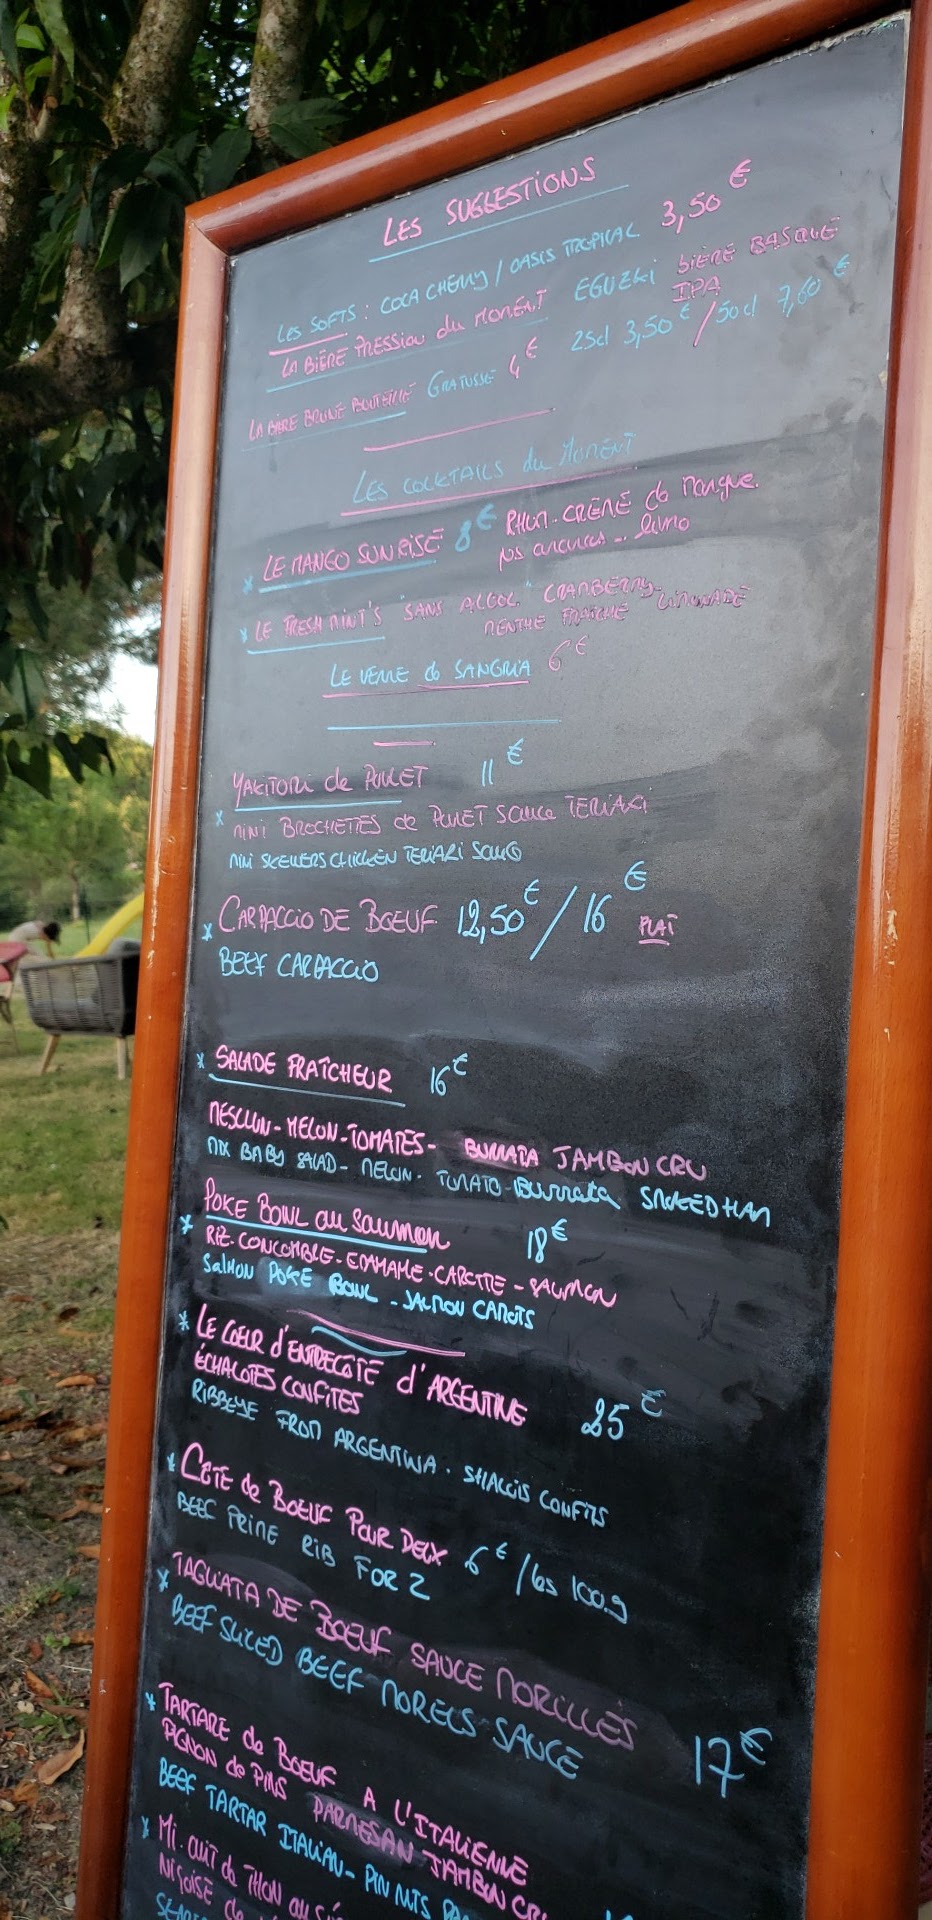 LES SUGGESTIONS
LES SOFTS : COCA CHERRY / OASIS TROPICAL 3,50 €
LA BIÈRE PRESSION du MOMENT EGUZKI BIÈRE BASQUE IPA
25cl 3,50 € / 50cl 7,60 €
LA BIÈRE BRUNE BOUTEILLE GRATUSSE 4 €
LES COCKTAILS du MOMENT
* LE MANGO SUNRISE 8 € RHUM-CRÈME de Mangue.
jus ananas
* LE FRESH MINT'S SANS ALCOOL CRANBERRY-
MENTHE FRAICHE LIMONADE
LE VERRE de SANGRIA 6 €
YAKITORI de POULET 11 €
* MINI BROCHETTES de POULET SAUCE TERIAKI
MINI SKEWERS CHICKEN TERIAKI
* CARPACCIO DE BOEUF 12,50 € / 16 € PLAT
BEEF CARPACCIO
* SALADE FRAÎCHEUR 16 €
MESCLUN-MELON-TOMATES- BURRATA JAMBON CRU
MIX BABY SALAD- MELON- TOMATO-BURRATA
* POKE BOWL au Saumon 18 €
RIZ-CONCOMBLE-EDAMAME-CAROTTE-SAUMON
SALMON POKE BOWL - SALMON CAROTS
* LE COEUR d'ENTRECOTE d'ARGENTINE 25 €
ÉCHALOTES CONFITES
RIBBEYE FROM ARGENTINA.
* CÔTE de BOEUF POUR DEUX 6 € / les 100g
BEEF PRIME RIB FOR 2
* TAGLIATA DE BOEUF SAUCE MORILLES 17 €
BEEF SLICED BEEF MORELS SAUCE
* TARTARE de BOEUF A L'ITALIENNE
PIGNON de PINS PARMESAN JAMBON CRU
BEEF TARTAR ITALIAN- PIN NUTS
* MI-CUIT de THON au
NIÇOISE de